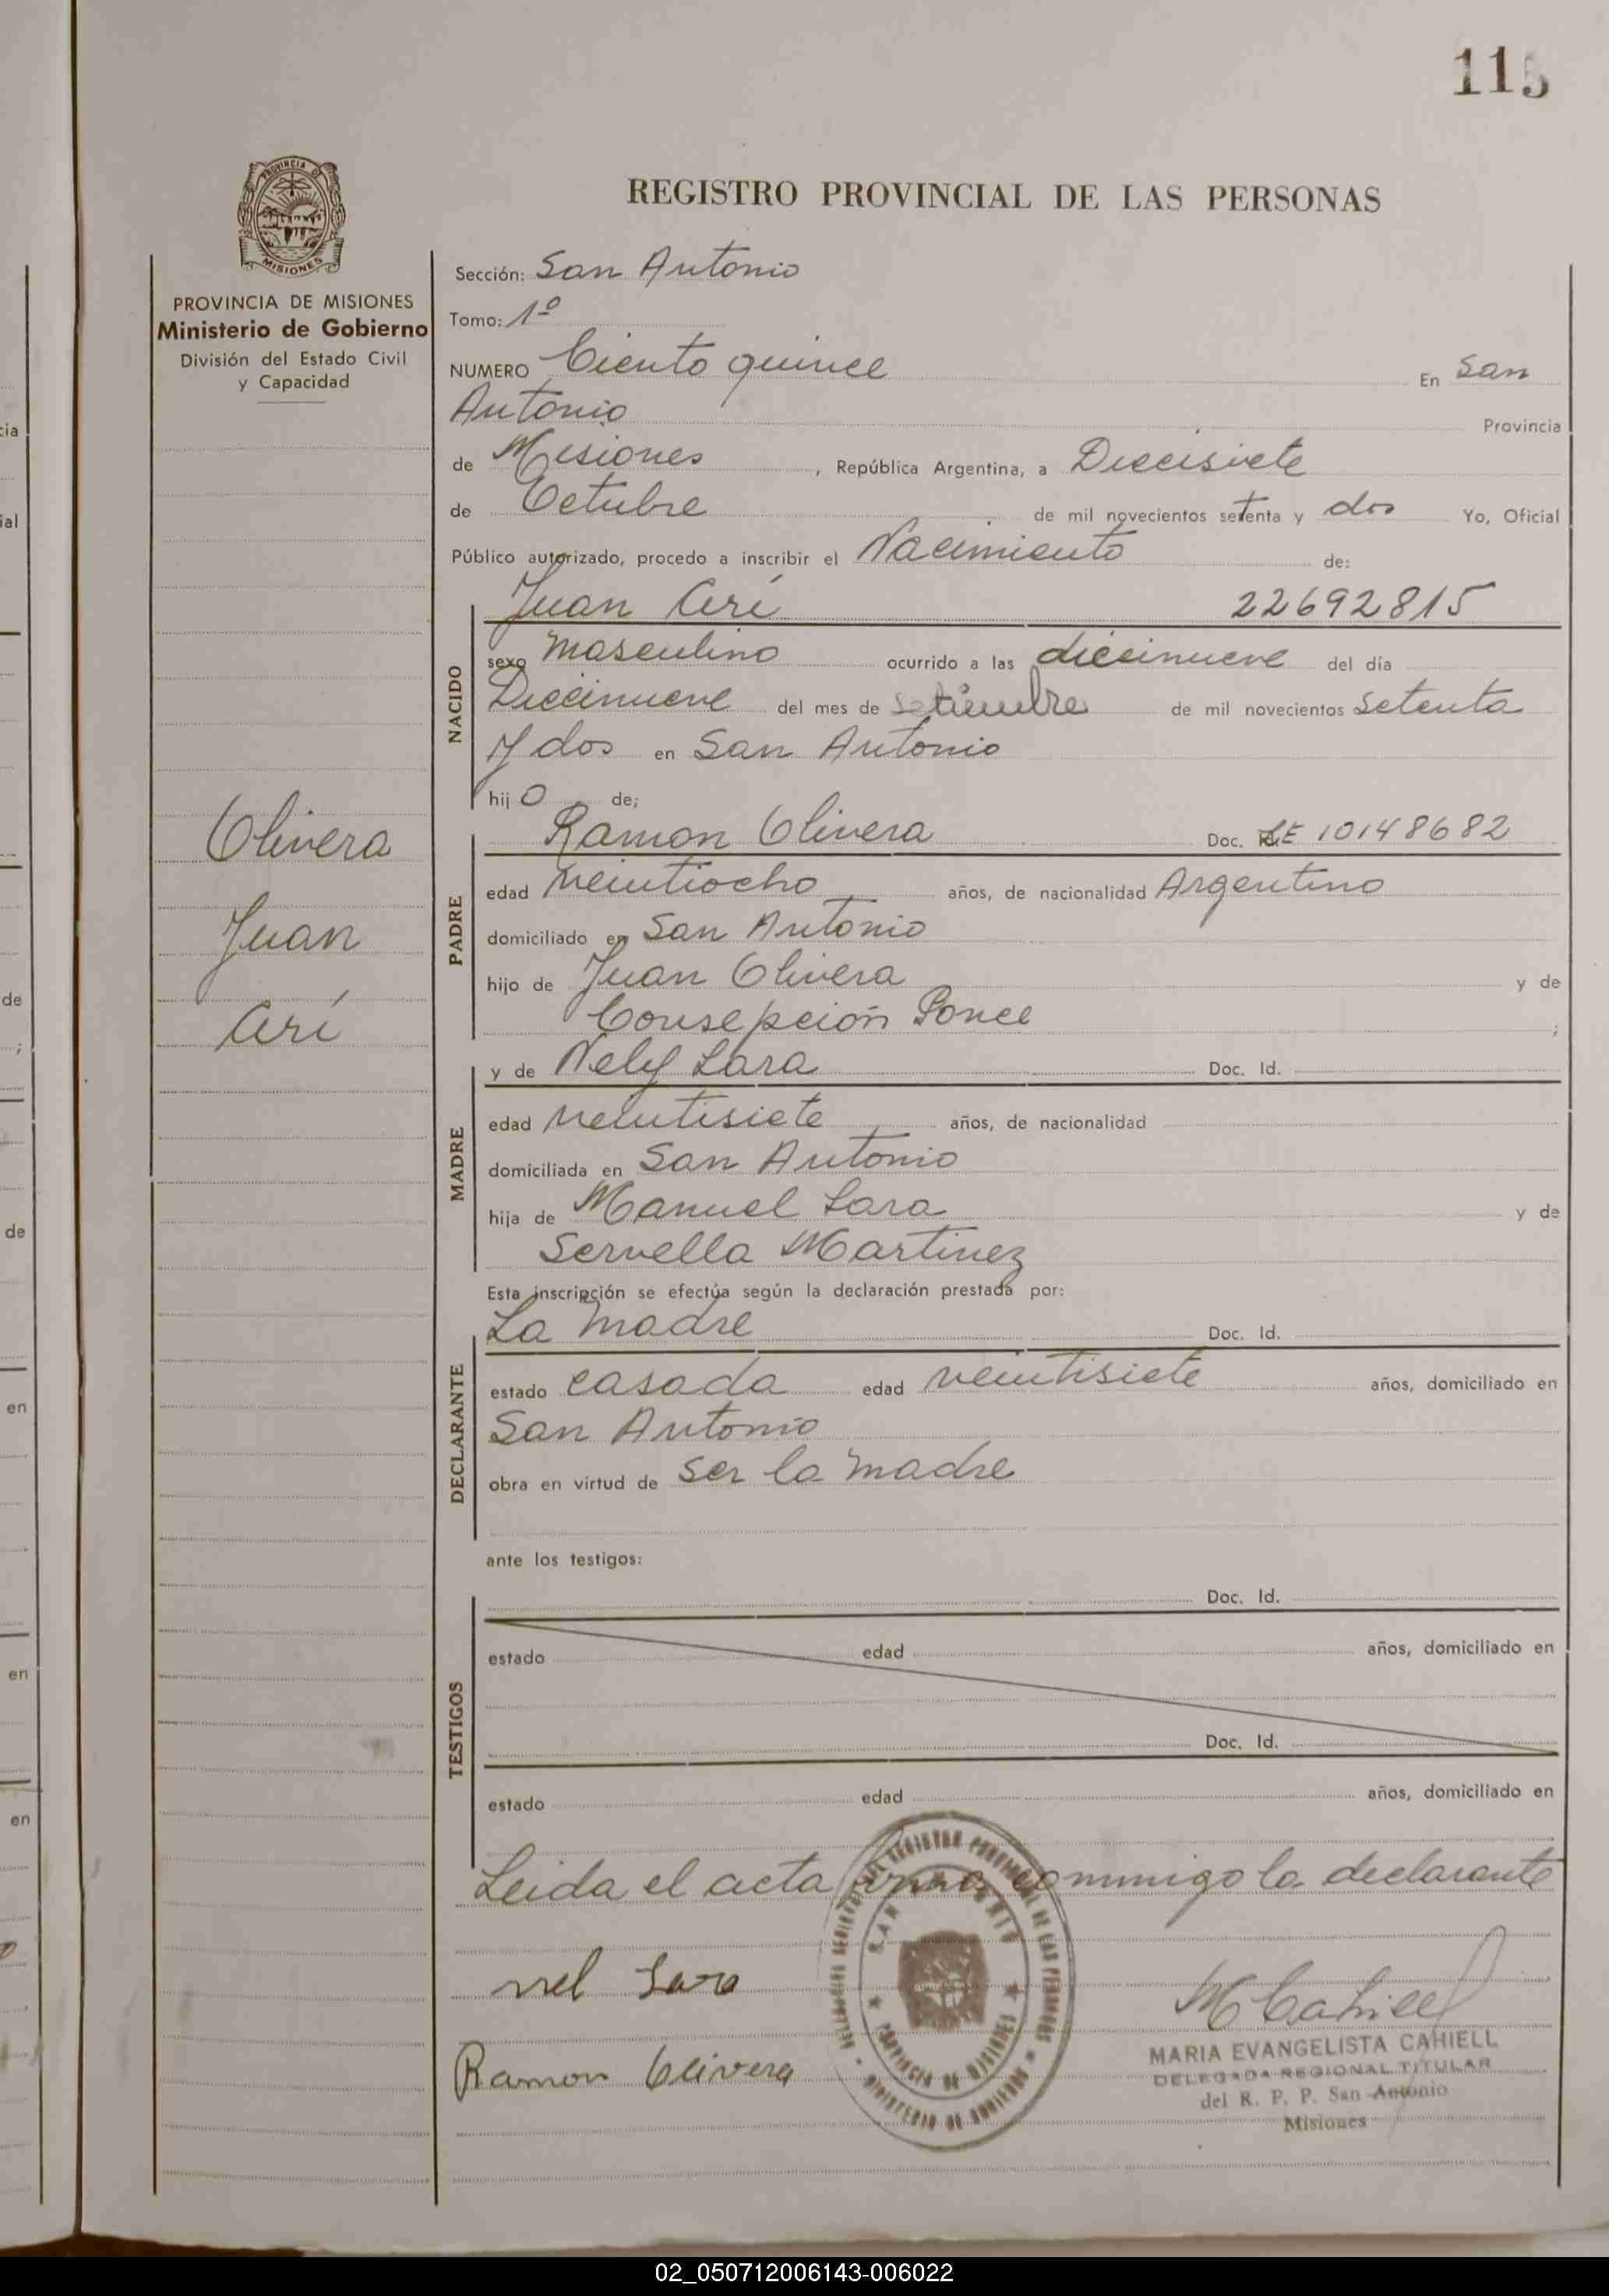 115
PROVINCIA DE MISIONES
Ministerio de Gobierno
División del Estado Civil
y Capacidad
Olivera
Juan
Arí
REGISTRO PROVINCIAL DE LAS PERSONAS
Sección: San Antonio
Tomo: 1º
NUMERO Ciento quince En San
Antonio Provincia
de Misiones, República Argentina, a Diecisiete
de Octubre de mil novecientos setenta y dos Yo, Oficial
Público autorizado, procedo a inscribir el Nacimiento de:
Juan Arí 22692815
NACIDO
sexo masculino ocurrido a las diecinueve del día
Diecinueve del mes de setiembre de mil novecientos setenta
y dos en San Antonio
hijo de;
Ramon Olivera Doc. LE 10148682
PADRE
edad veintiocho años, de nacionalidad Argentino
domiciliado en San Antonio
hijo de Juan Olivera y de
Consepción Ponce ;
y de Nely Lara Doc. Id.
MADRE
edad veintisiete años, de nacionalidad
domiciliada en San Antonio
hija de Manuel Lara y de
Servella Martinez
Esta inscripción se efectúa según la declaración prestada por:
La madre Doc. Id.
DECLARANTE
estado casada edad veintisiete años, domiciliado en
San Antonio
obra en virtud de ser la madre
ante los testigos:
Doc. Id.
TESTIGOS
estado edad años, domiciliado en
Doc. Id.
estado edad años, domiciliado en
Leida el acta firma conmigo la declarante
nel Lara
M Cahiell
MARIA EVANGELISTA CAHIELL
DELEGADA REGIONAL TITULAR
del R. P. P. San Antonio
Misiones
Ramon Olivera
02_050712006143-006022